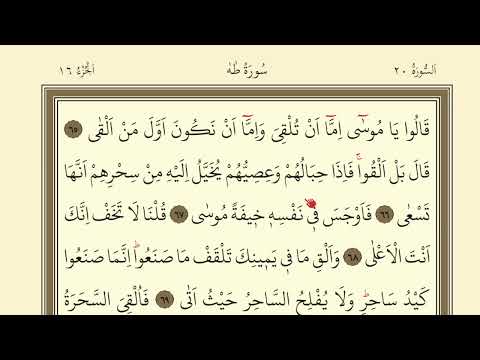 اَلسُّورَةُ ٢٠ سُورَةُ طٰهٰ اَلْجُزْءُ ١٦
قَالُوا يَا مُوسٰٓى اِمَّٓا اَنْ تُلْقِيَ وَاِمَّٓا اَنْ نَكُونَ اَوَّلَ مَنْ اَلْقٰى ٦٥
قَالَ بَلْ اَلْقُواۚ فَاِذَا حِبَالُهُمْ وَعِصِيُّهُمْ يُخَيَّلُ اِلَيْهِ مِنْ سِحْرِهِمْ اَنَّهَا
تَسْعٰى ٦٦ فَاَوْجَسَ ف۪ي نَفْسِه۪ خ۪يفَةً مُوسٰى ٦٧ قُلْنَا لَا تَخَفْ اِنَّكَ
اَنْتَ الْاَعْلٰى ٦٨ وَاَلْقِ مَا ف۪ي يَم۪ينِكَ تَلْقَفْ مَا صَنَعُواۜ اِنَّمَا صَنَعُوا
كَيْدُ سَاحِرٍۜ وَلَا يُفْلِحُ السَّاحِرُ حَيْثُ اَتٰى ٦٩ فَاُلْقِيَ السَّحَرَةُ